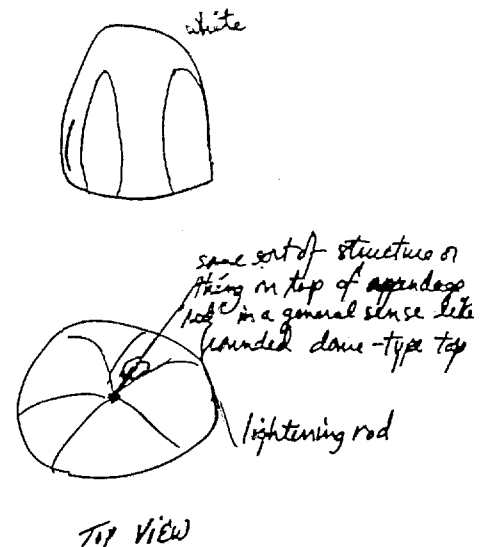 white
some sort of structure or
thing on top of appendage
"rod" in a general sense like
rounded dome-type top
lightening rod
TOP VIEW